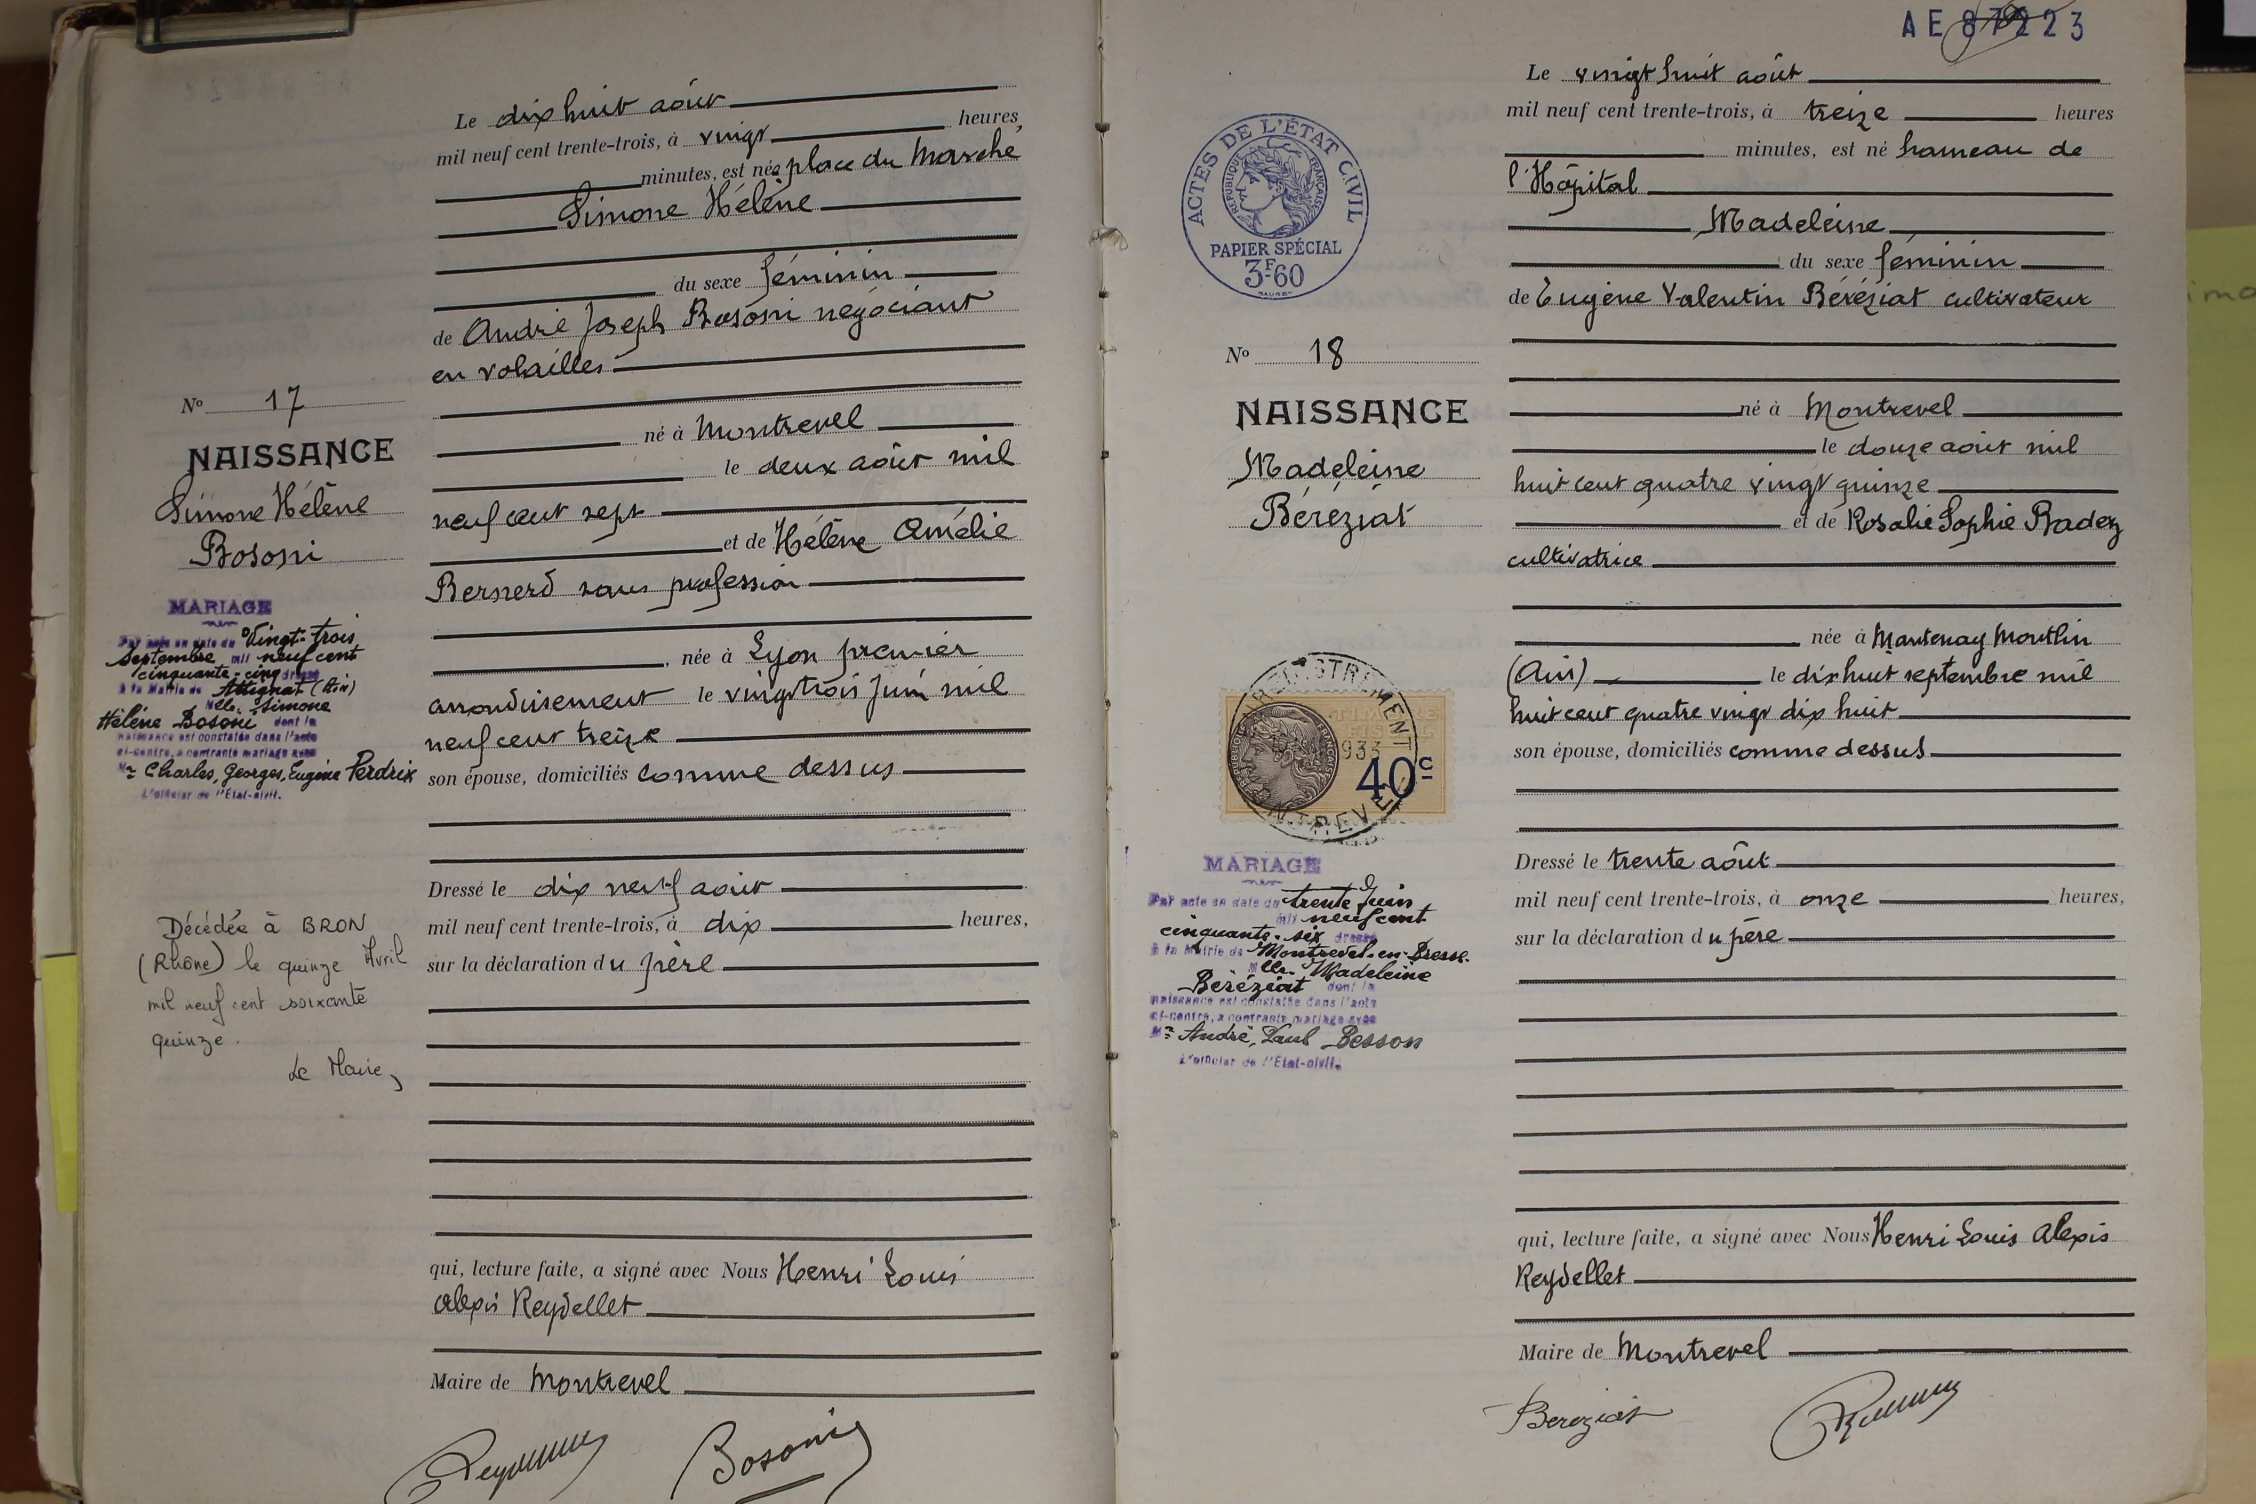 Le dix huit août
mil neuf cent trente-trois, à vingt heures,
minutes, est née place du Marché
Simone Hélène
du sexe féminin
de André Joseph Bosoni négociant
en volailles
né à Montrevel
le deux août mil
neuf cent sept
et de Hélène Amélie
Bernerd sans profession
, née à Lyon premier
arrondissement le vingt trois Juin mil
neuf cent treize
son épouse, domiciliés comme dessus
Dressé le dix neuf août
mil neuf cent trente-trois, à dix heures,
sur la déclaration du père
qui, lecture faite, a signé avec Nous Henri Louis
Alexis Reydellet
Maire de Montrevel
Bosoni
No 17
NAISSANCE
Simone Hélène
Bosoni
MARIAGE
Par acte en date du Vingt-trois
Septembre mil neuf cent
cinquante-cinq dressé
à la Mairie de Attignat (Ain)
Mlle Simone
Hélène Bosoni dont la
naissance est constatée dans l'acte
ci-contre, a contracté mariage avec
Mr Charles, Georges, Eugène Perdrix
L'officier de l'État-civil.
Décédée à BRON
(Rhône) le quinze Avril
mil neuf cent soixante
quinze.
Le Maire,
AE 87223
Le vingt huit août
mil neuf cent trente-trois, à treize heures
minutes, est né hameau de
l'Hôpital
Madeleine
du sexe féminin
de Eugène Valentin Béréziat cultivateur
né à Montrevel
le douze août mil
huit cent quatre vingt quinze
et de Rosalie Sophie Radez
cultivatrice
née à Mantenay Montlin
(Ain) le dix huit septembre mil
huit cent quatre vingt dix huit
son épouse, domiciliés comme dessus
Dressé le trente août
mil neuf cent trente-trois, à onze heures,
sur la déclaration du père
qui, lecture faite, a signé avec Nous Henri Louis Alexis
Reydellet
Maire de Montrevel
Bereziat
ACTES DE L'ÉTAT CIVIL
RÉPUBLIQUE FRANÇAISE
PAPIER SPÉCIAL
3F-60
No 18
NAISSANCE
Madeleine
Béréziat
TIMBRE
FISCAL
40c
MARIAGE
Par acte en date du trente Juin
mil neuf cent
cinquante-six dressé
à la Mairie de Montrevel-en-Bresse.
Mlle Madeleine
Béréziat dont la
naissance est constatée dans l'acte
ci-contre, a contracté mariage avec
Mr André, Paul Besson
L'officier de l'État-civil.